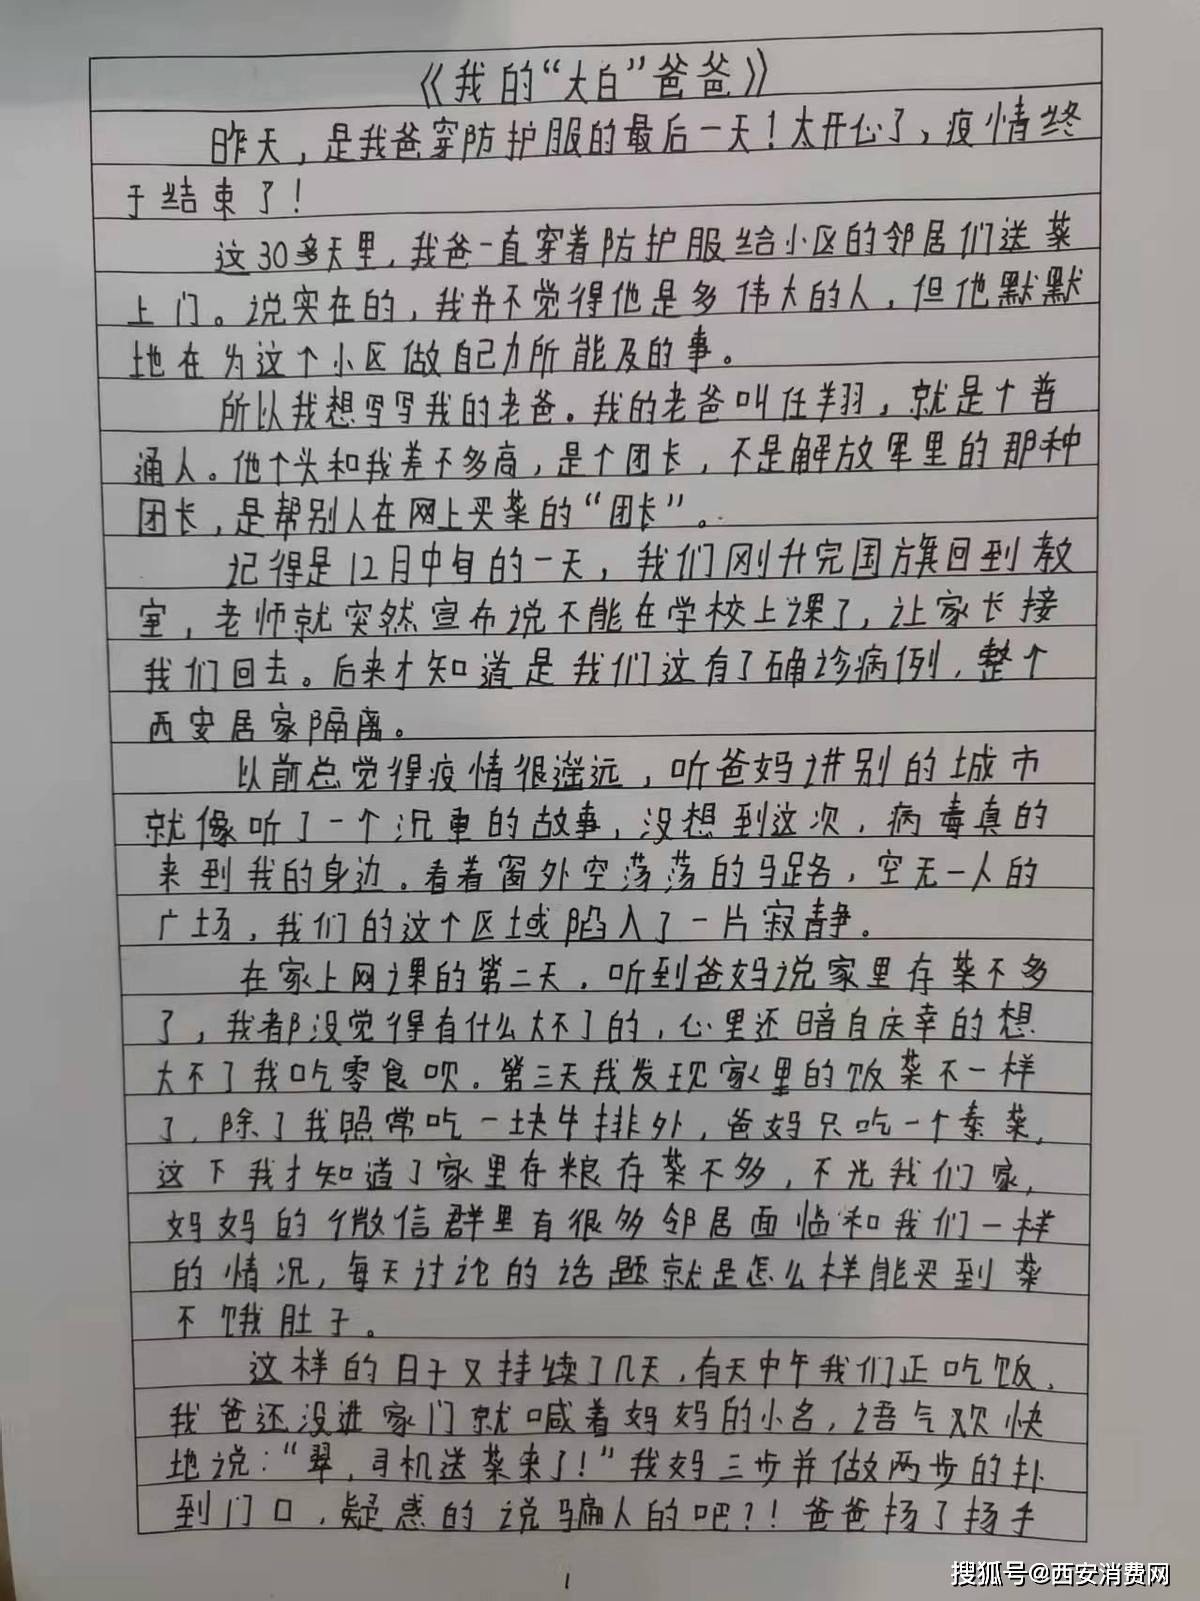 《我的“大白”爸爸》
昨天，是我爸穿防护服的最后一天！太开心了，疫情终
于结束了！
这30多天里，我爸一直穿着防护服给小区的邻居们送菜
上门。说实在的，我并不觉得他是多伟大的人，但他默默
地在为这个小区做自己力所能及的事。
所以我想写写我的老爸。我的老爸叫任羊羽，就是个普
通人。他个头和我差不多高，是个团长，不是解放军里的那种
团长，是帮别人在网上买菜的“团长”。
记得是12月中旬的一天，我们刚升完国旗回到教
室，老师就突然宣布说不能在学校上课了，让家长接
我们回去。后来才知道是我们这有了确诊病例，整个
西安居家隔离。
以前总觉得疫情很遥远，听爸妈讲别的城市
就像听了一个沉重的故事，没想到这次，病毒真的
来到我的身边。看着窗外空荡荡的马路，空无一人的
广场，我们的这个区域陷入了一片寂静。
在家上网课的第二天，听到爸妈说家里存菜不多
了，我都没觉得有什么大不了的，心里还暗自庆幸的想
大不了我吃零食呗。第三天我发现家里的饭菜不一样
了，除了我照常吃一块牛排外，爸妈只吃一个素菜，
这下我才知道了家里存粮存菜不多，不光我们家，
妈妈的微信群里有很多邻居面临和我们一样
的情况，每天讨论的话题就是怎么样能买到菜
不饿肚子。
这样的日子又持续了几天，有天中午我们正吃饭，
我爸还没进家门就喊着妈妈的小名，语气欢快
地说：“翠，司机送菜来了！”我妈三步并做两步的扑
到门口，疑惑的说骗人的吧？！爸爸扬了扬手
1
搜狐号@西安消费网